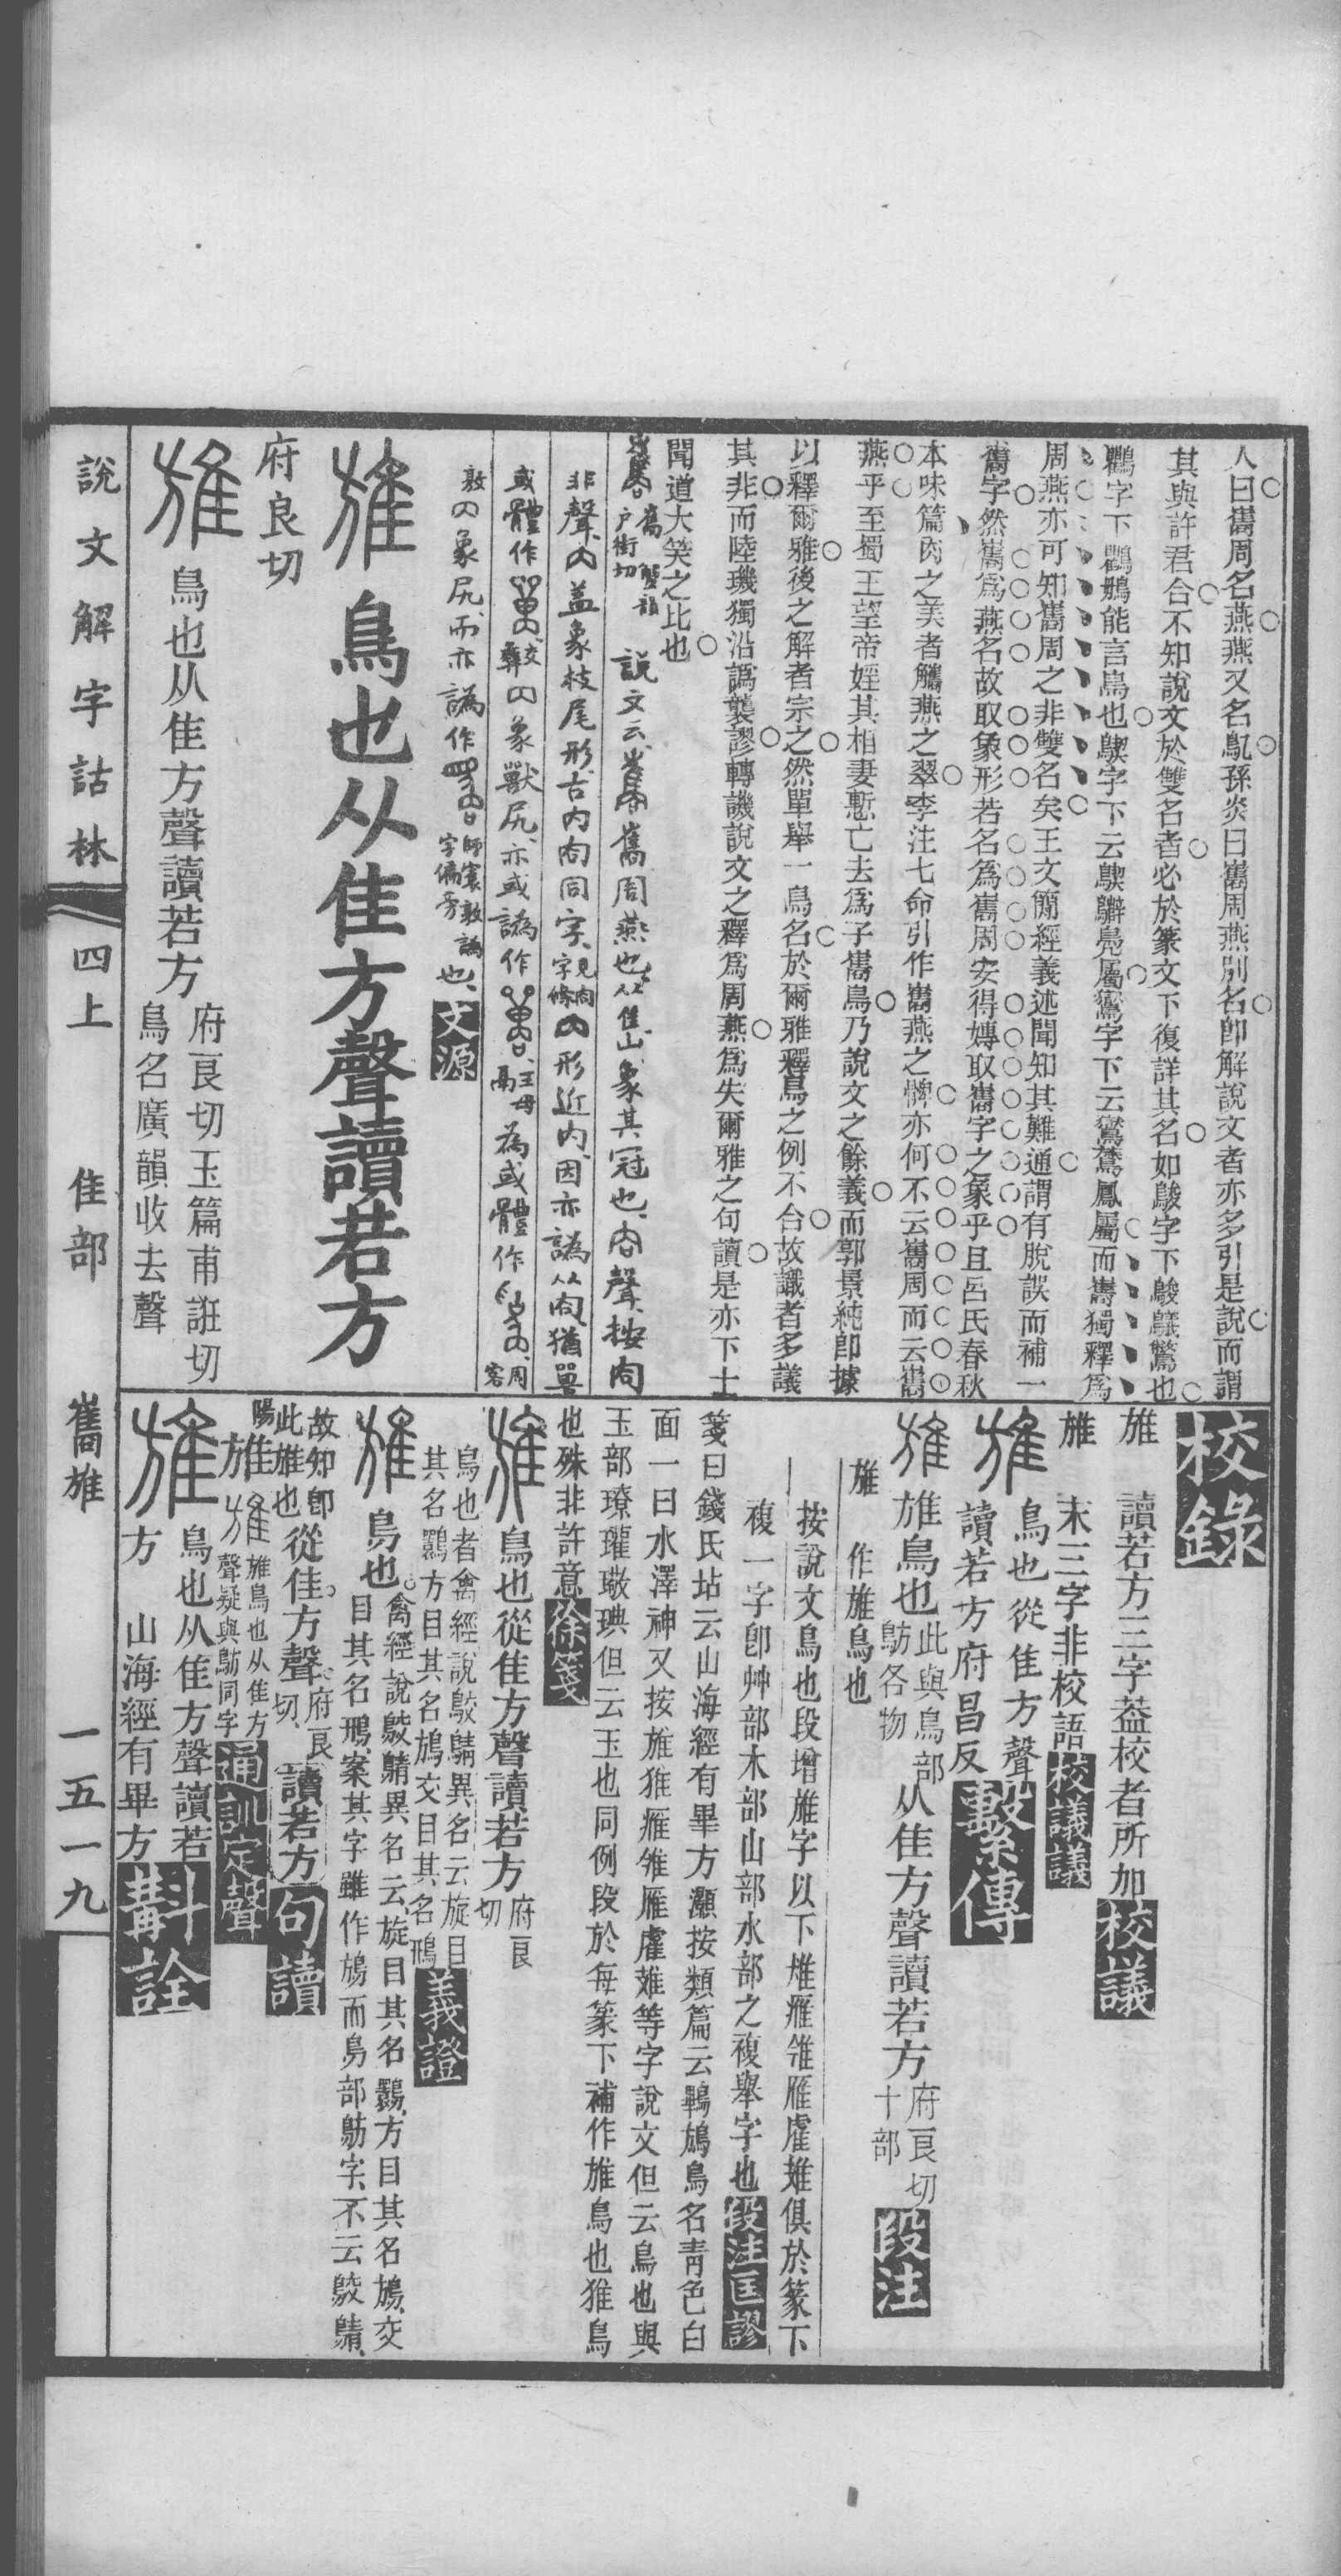 人曰巂周名燕燕又名鳦孫炎曰巂周燕別名卽解說文者亦多引是說而謂
其與許君合不知說文於雙名者必於篆文下復詳其名如鵔字下鵔鸃鷩也
鸜字下鸜鵒能言鳥也鶀字下云鶀䴙鳧屬鸑字下云鸑鷟鳳屬而巂獨釋爲
周燕亦可知巂周之非雙名矣王文簡經義述聞知其難通謂有脫誤而補一
巂字然巂爲燕名故取象形若名爲巂周安得專取巂字之象乎且呂氏春秋
本味篇肉之美者觿燕之翠李注七命引作巂燕之髀亦何不云巂周而云巂
燕乎至蜀王望帝婬其相妻慙亡去爲子巂鳥乃說文之餘義而郭景純卽據
以釋爾雅後之解者宗之然單舉一鳥名於爾雅釋鳥之例不合故識者多議
其非而陸璣獨沿譌襲謬轉譏說文之釋爲周燕爲失爾雅之句讀是亦下士
聞道大笑之比也
巂 蟹韻 戶街切 說文云巂周燕也从隹山象其冠也㕯聲按㕯
非聲冏蓋象枝尾形古內㕯同字見㕯字條冏形近內因亦譌从㕯猶䍃
或體作 交彝 象獸尻亦或譌作 王母鬲 爲或體作 周窖
敦 象尻而亦譌作 師㝨敦譌字偏旁也 文源
䧺 鳥也从隹方聲讀若方
府良切
䧺 鳥也从隹方聲讀若方 府良切玉篇甫誑切
鳥名廣韻收去聲
校錄
䧺 讀若方三字葢校者所加 校議
䧺 末三字非校語 校議議
䧺 鳥也從隹方聲
讀若方府昌反 繫傳
䧺 䧺鳥也 此與鳥部
鴋各物 从隹方聲讀若方 府良切
十部 段注
䧺 作䧺鳥也
按說文鳥也段增䧺字以下雄雁雂雁雐雉俱於篆下
複一字卽艸部木部山部水部之複舉字也 段注匡謬
箋曰錢氏坫云山海經有畢方灝按類篇云鷝鴋鳥名靑色白
面一曰水澤神又按䧺雅雁雂雁雐雉等字說文但云鳥也與
玉部璙瓘璥琠但云玉也同例段於每篆下補作䧺鳥也雅鳥
也殊非許意 徐箋
䧺 鳥也從隹方聲讀若方 府良
切
鳥也者禽經說鵁鶄異名云旋目
其名鸀方目其名鴋交目其名鳽 義證
䧺 鳥也 禽經說鵁鶄異名云旋目其名鸀方目其名鴋交
目其名鳽案其字雖作鴋而鳥部鴋字不云鵁鶄
故知卽
此䧺也 從隹方聲 府良
切 讀若方 句讀
陽 䧺 䧺鳥也从隹方
聲疑與鴋同字 通訓定聲
䧺 鳥也从隹方聲讀若
方 山海經有畢方 斠詮
說文解字詁林 四上 隹部 巂䧺 一五一九